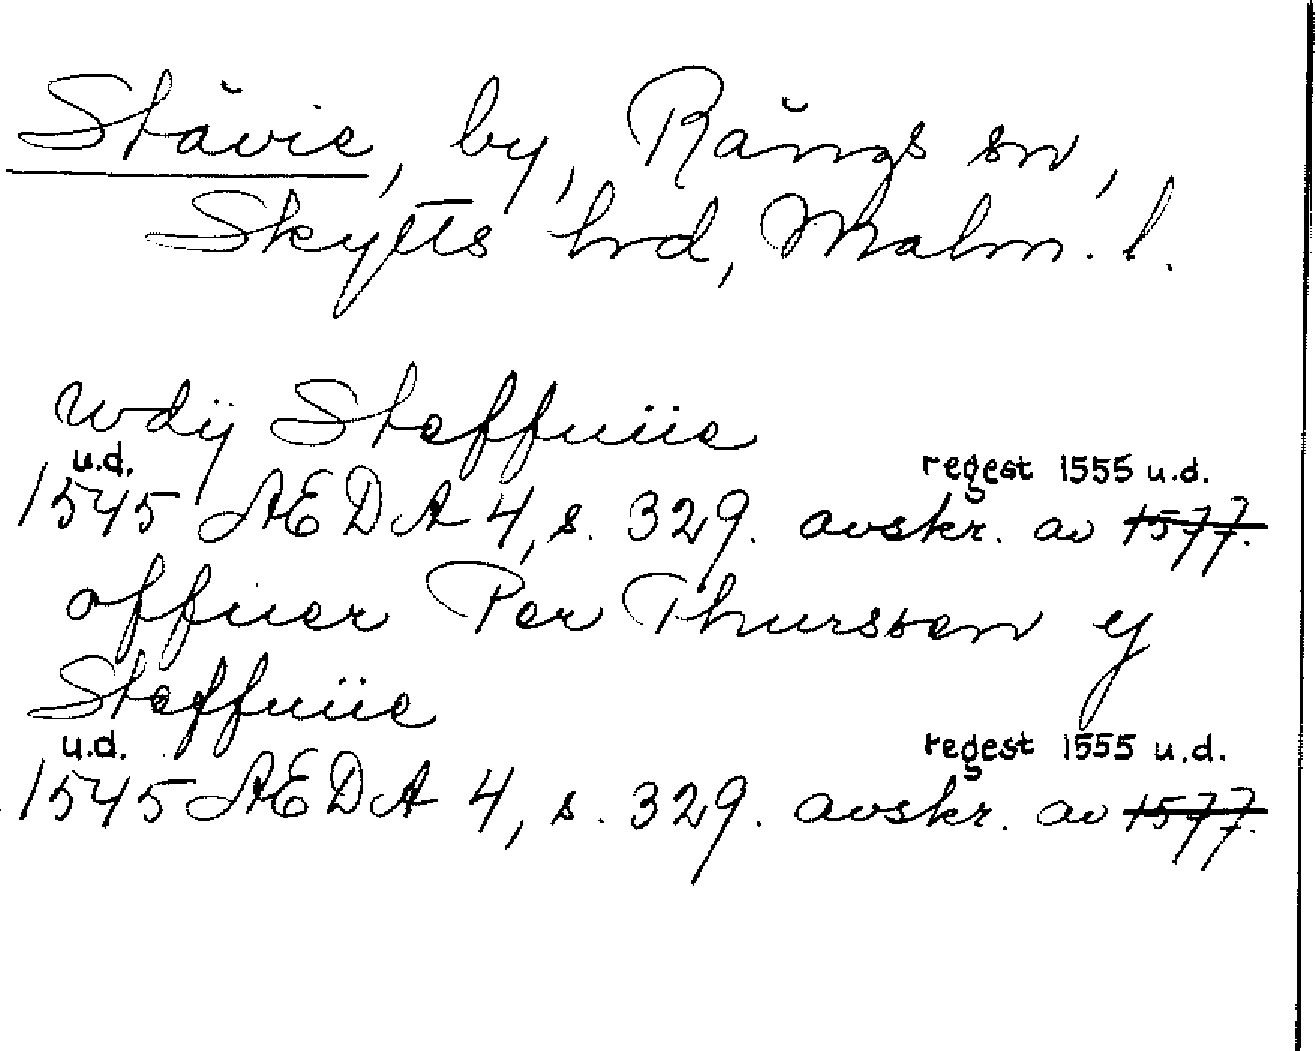 Stävie, by, Rängs sn,
Skytts hrd, Malm. l.
wdij Steffuiie
u.d. regest 1555 u.d.
1545 AEDA 4, s. 329. avskr. av 1577.
offuer Per Thurssøen y
Steffuiie
u.d. regest 1555 u.d.
1545 AEDA 4, s. 329. avskr. av 1577.